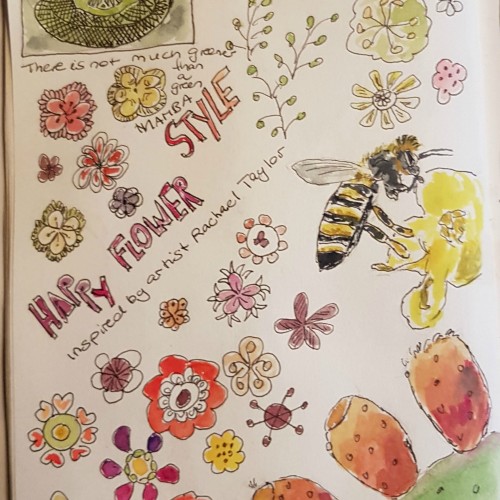 There is not much greener
than
a
green
MAMBA
HAPPY FLOWER STYLE
inspired by artist Rachael Taylor